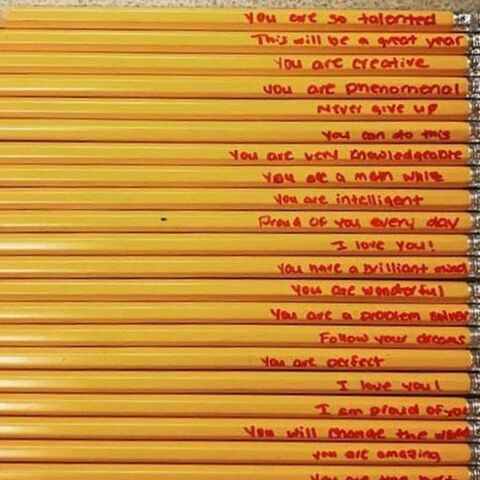 You are so talented
This will be a great year
You are creative
you are phenomenal
Never give up
You can do this
You are very knowledgeable
You are a math whiz
You are intelligent
Proud of you every day
I love you!
You have a brilliant mind
You are wonderful
You are a problem solver
Follow your dreams
You are perfect
I love you!
I am proud of you
You will change the world
you are amazing
you are the best